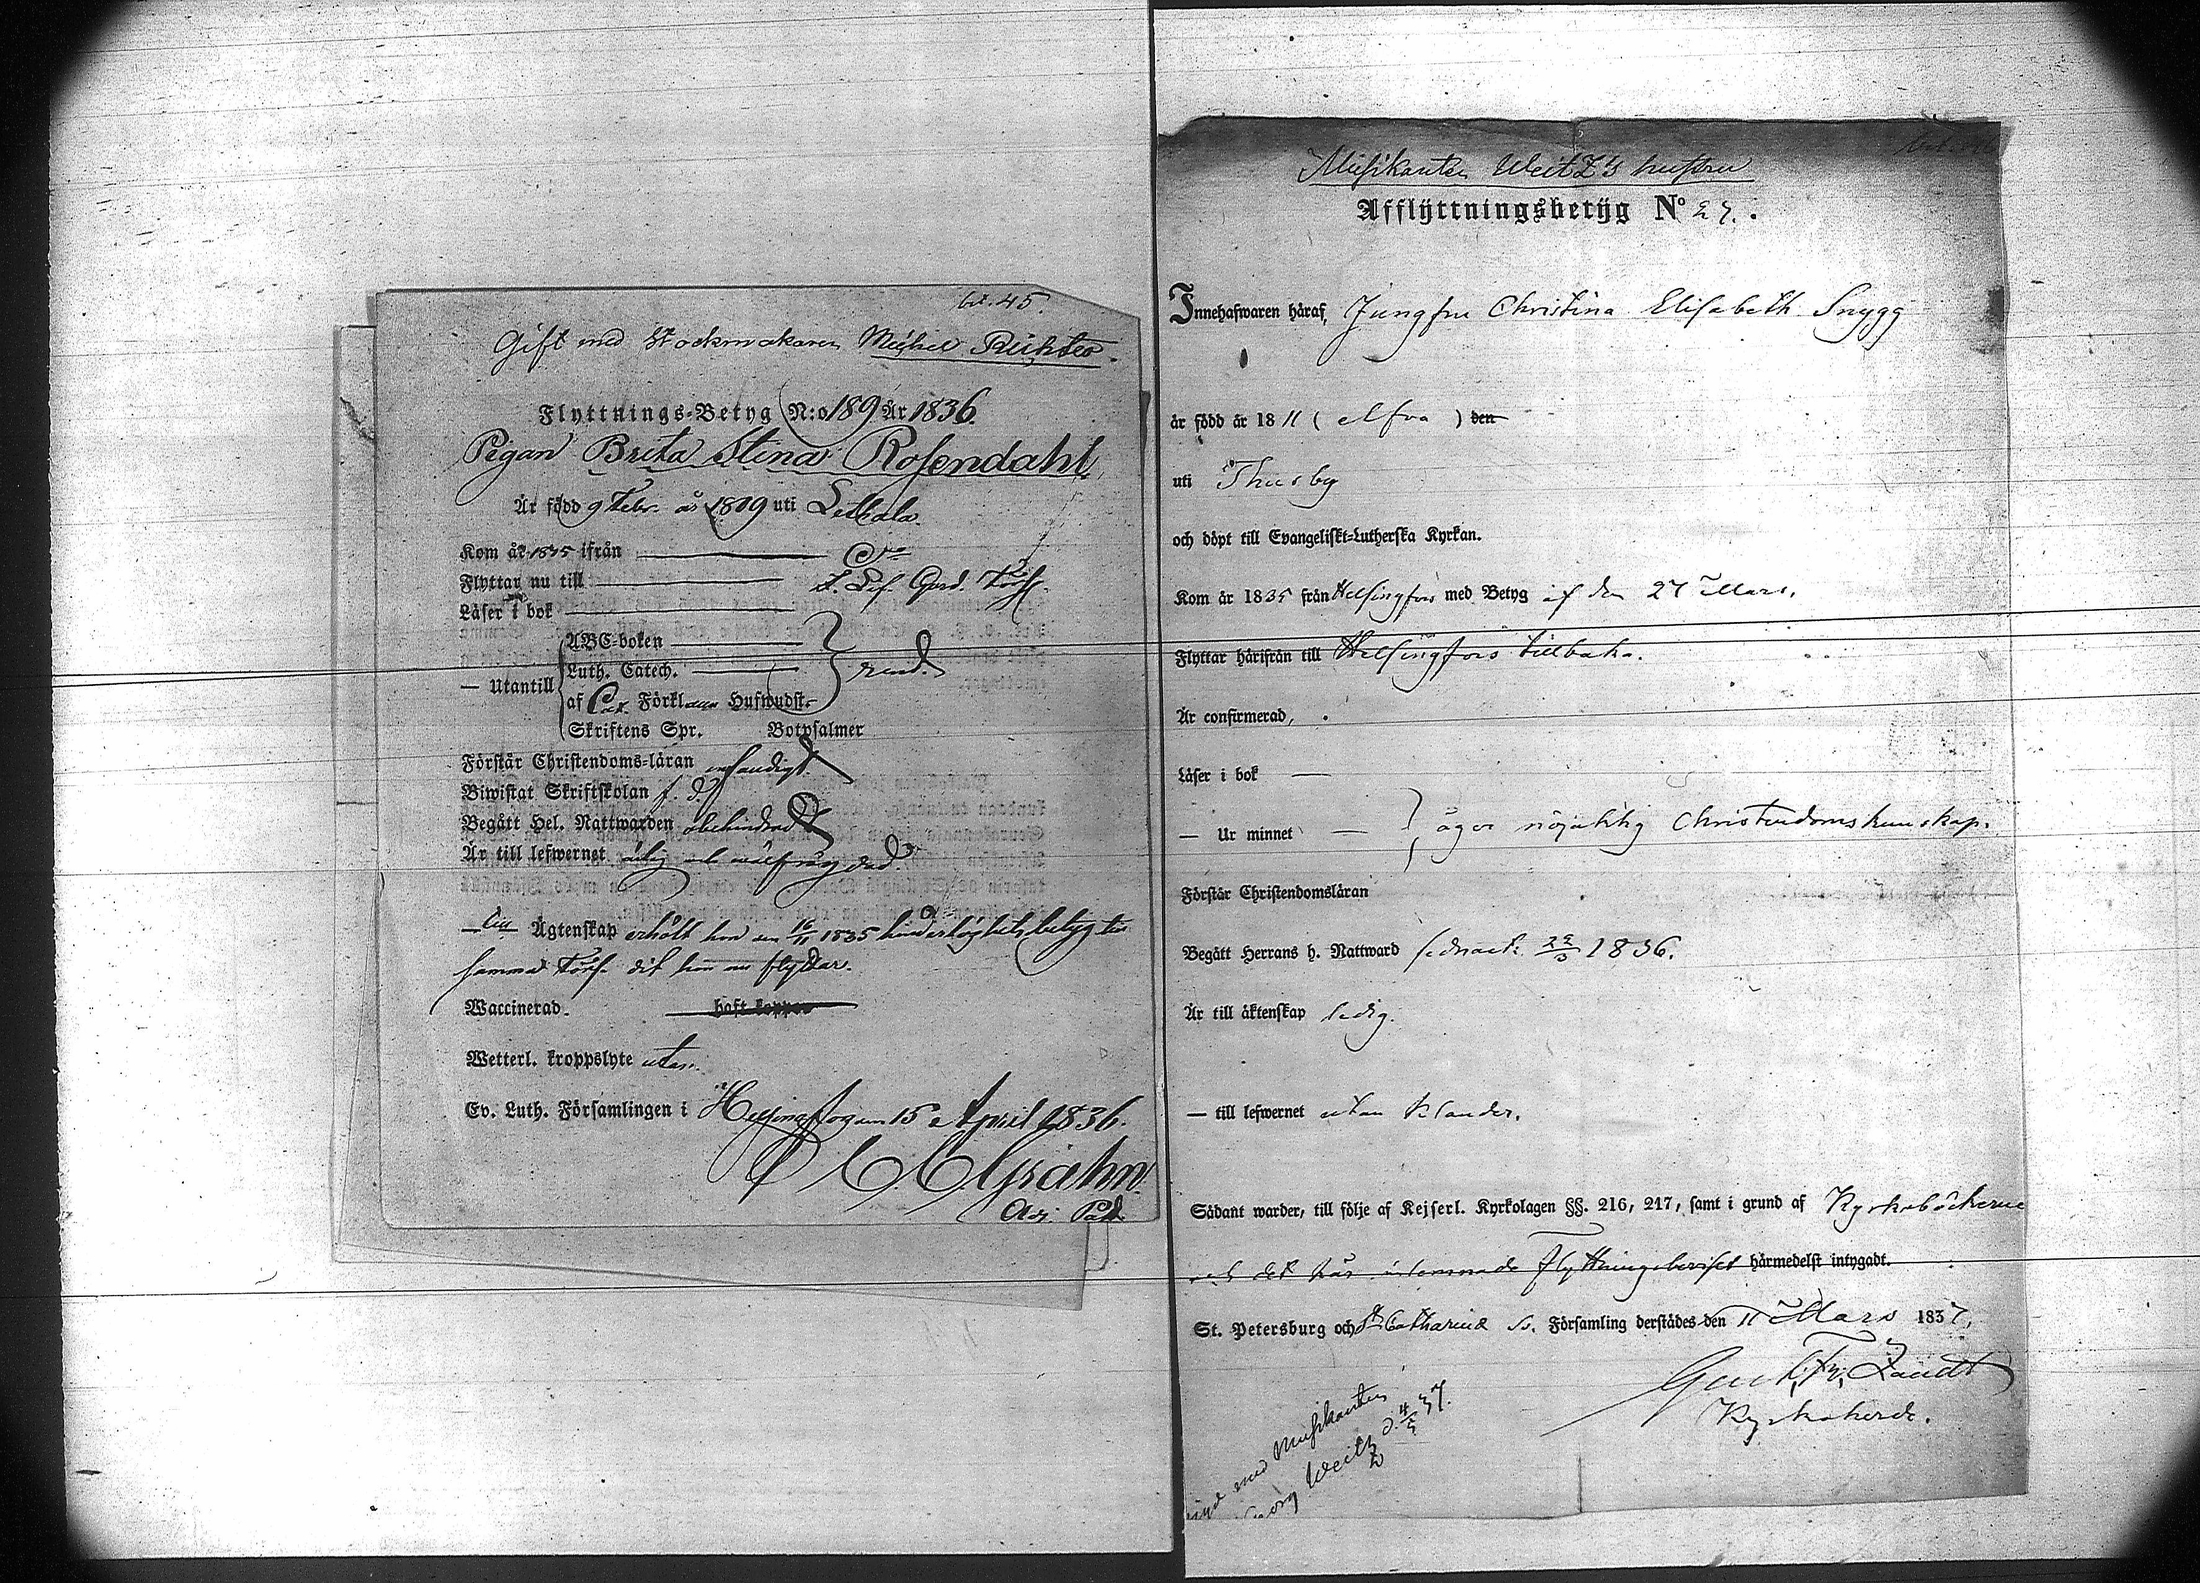 bet. 45.
Gift med Stockmakaren Michel Richter.
Flyttnings-Betyg N:o 189 År 1836.
Pigan Brita Stina Rosendahl
Är född 9 Febr. år 1809 uti Leskala
Kom år 1835 ifrån
Flyttar nu till
Läser i bok
— Utantill
ABC-boken
Luth. Catech.
af Förkl Hufwudst.
Skriftens Spr. Botpsalmer
Förstår Christendoms-läran
Biwistat Skriftskolan f. d.
Begått Hel. Nattwarden obehindrad
Är till lefwernet ärlig och välfrägdad
Ägtenskap erhölt hon den 16/11 1835 hinderlöshetsbetyg till
samma dit hon nu flyttar.
Waccinerad. haft koppor
Wetterl. kroppslyte utan.
Ev. Luth. Församlingen i Helsingfors den 15 April 1836.
Grahn
Adj. Past.
Musikanten Weitz's hustru
Afflÿttningsbetÿg No 27.
Innehafwaren häraf, Jungfru Christina Elisabeth Snygg
är född år 1811 ( elfva ) den
uti Thusby
och döpt till Evangeliskt-Lutherska Kyrkan.
Kom år 1835 från Helsingfors med Betyg af den 27 Mars.
Flyttar härifrån till Helsingfors tillbaka.
Är confirmerad,
Läser i bok —
— Ur minnet — äger nöjaktig Christendomskunskap.
Förstår Christendomsläran
Begått Herrans h. Nattward sednast 1836.
Är till äktenskap ledig.
— till lefwernet utan klander.
Sådant warder, till följe af Kejserl. Kyrkolagen §§. 216, 217, samt i grund af Kyrkoböckerne
och det här inlemnade Flyttningsbeviset härmedelst intygadt.
St. Petersburg och St Catharinæ Sv. Församling derstädes den 11 Mars 1837,
Gust. Fr. Zandt
Kyrkoherde.
med Musikanten
Georg Weitz d. 4/5 37.